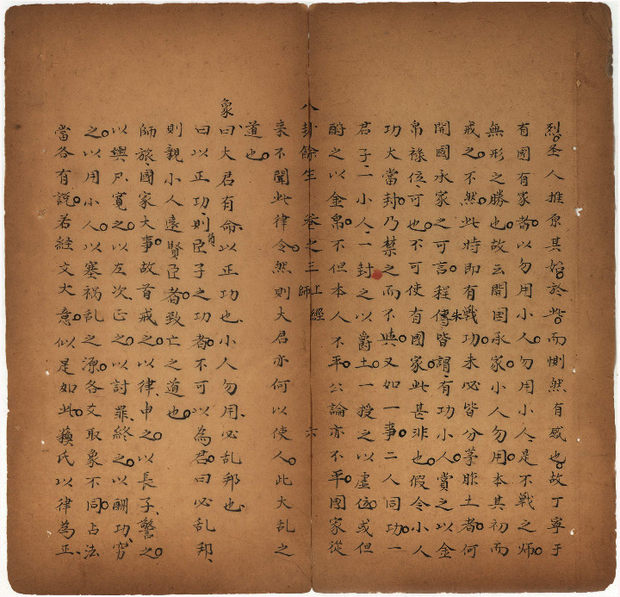 烈聖人推原其始於此而惻然有感也故丁寧于
有國有家者以勿用小人勿用小人是不戰之師
無形之勝也故云開国承家小人勿用本其初而
戒之不然此時即有戰功未必皆分茅胙土者何
開國承家之可言程傳朱皆謂有功小人賞之以金
帛祿位可也不可使有國家此甚非也假令小人
功大當封乃禁之而不與又如一事二人同功一
君子一小人一封之以爵土一授之以虛位或但
酧之以金帛不但本人不平公論亦不平國家從
八卦餘生 卷之三 上經 師 六
来不聞此律令然則大君亦何以使人此大乱之
道也
象曰大君有命以正功也小人勿用必乱邦也
曰以正功則臣子之功者不可以為君曰必乱邦
則親小人遠賢臣者致亡之道也
師旅國家大事故首戒之以律申之以長子警之
以輿尸寬之以左次正之以討罪終之以酬功窮
之以用小人以塞禍乱之源各爻取象不同占法
當各有説若経文大意似是如此蘓氏以律為正